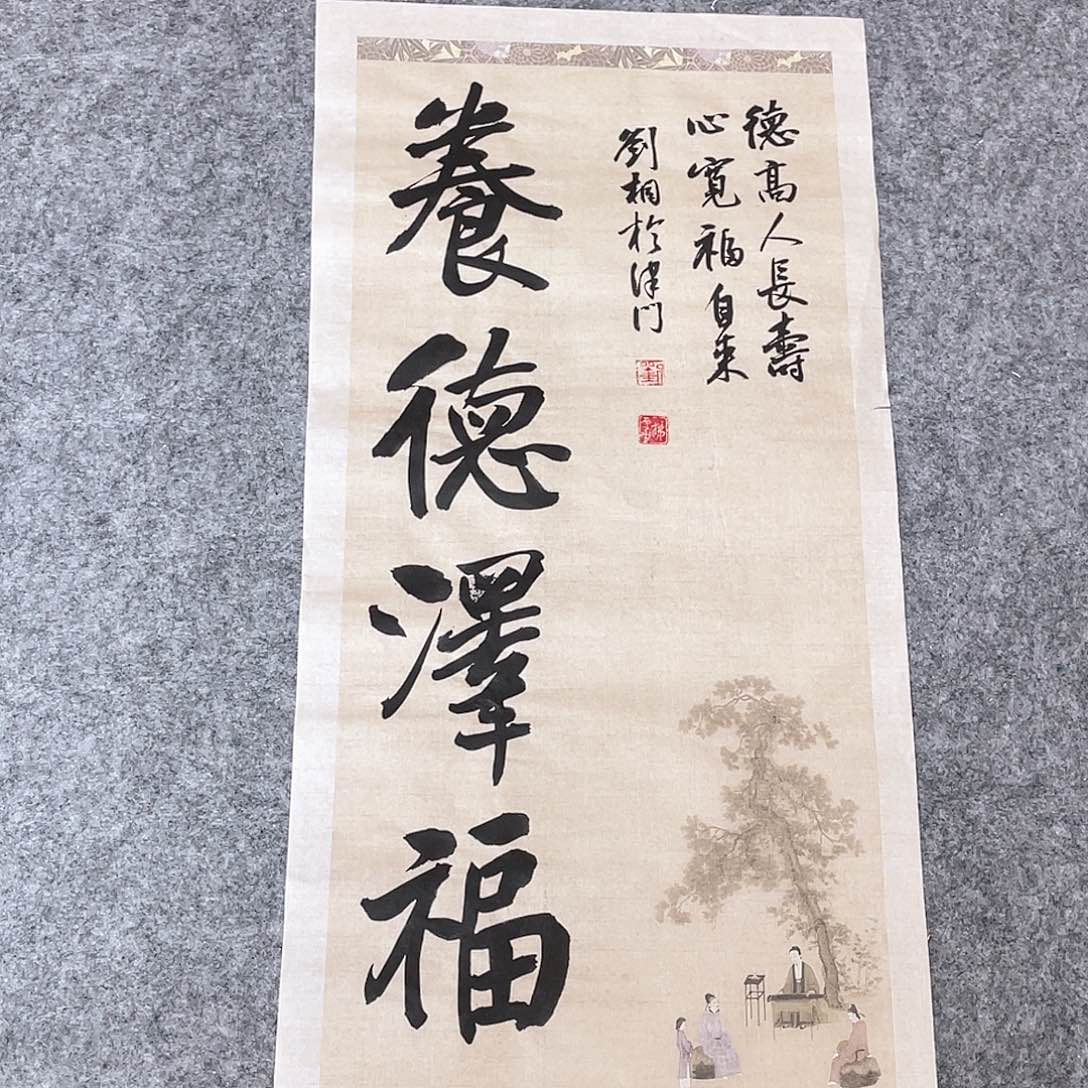 德高人長壽
心寬福自来
劉桐於津门
養德澤福